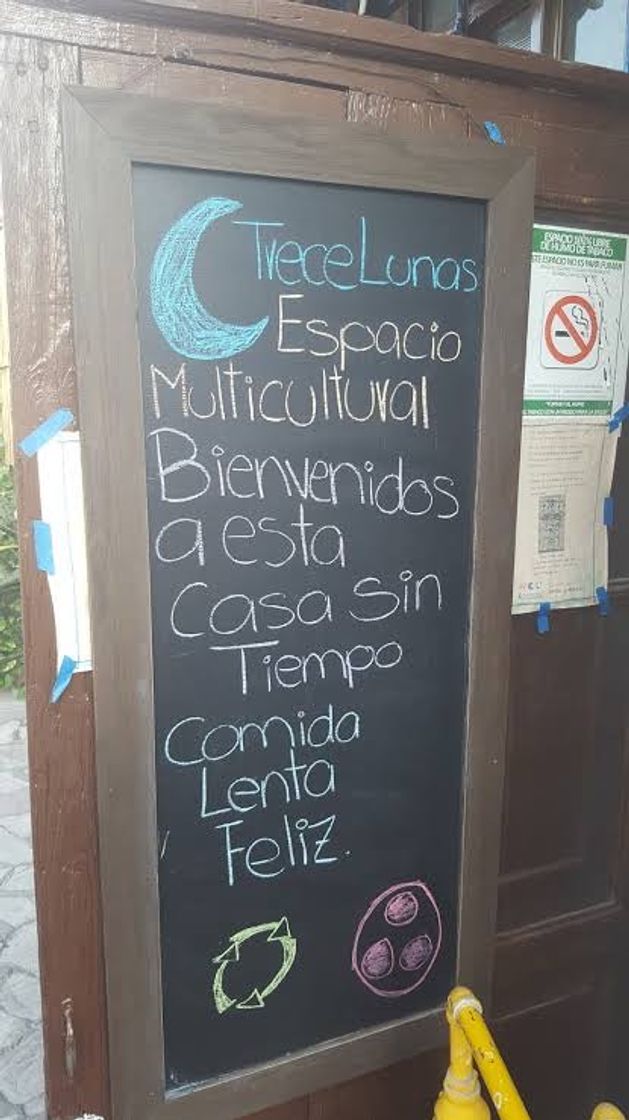 TreceLunas
Espacio
Multicultural
Bienvenidos
a esta
casa sin
Tiempo
Comida
Lenta
Feliz.
ESPACIO 100% LIBRE
DE HUMO DE TABACO
ESTE ESPACIO NO ES PARA FUMAR